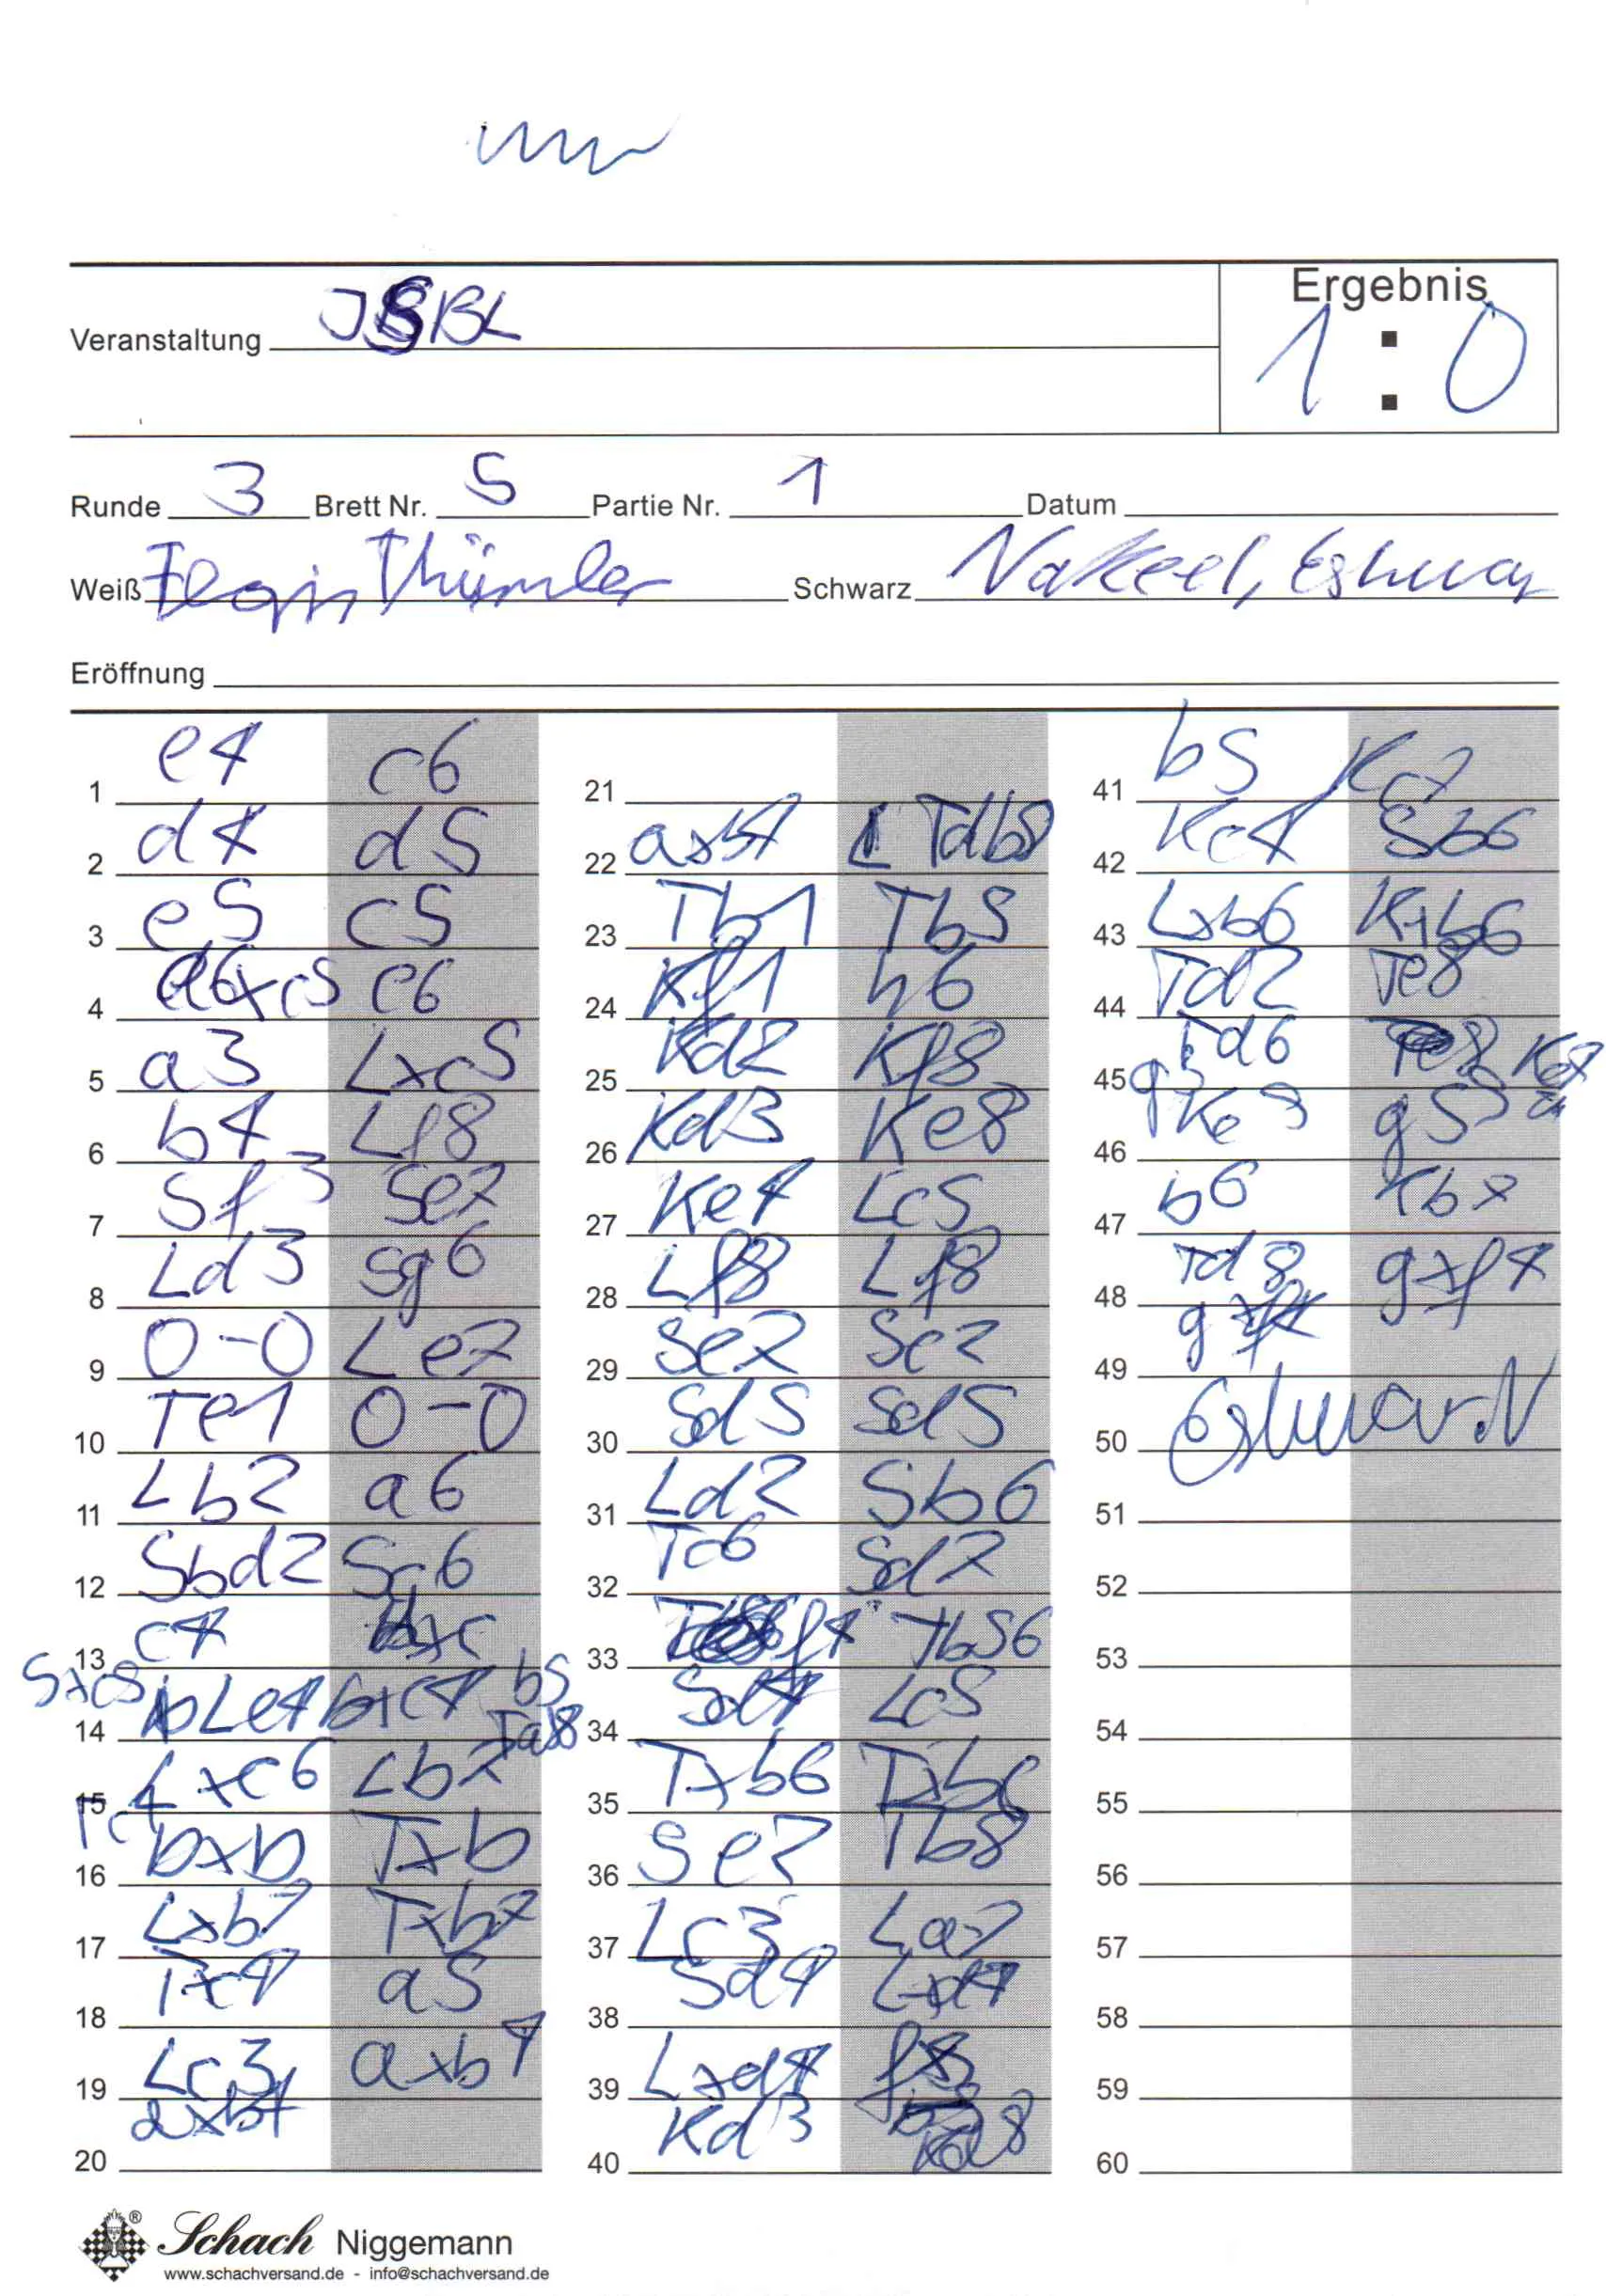 Veranstaltung JSBL
Ergebnis
1 : 0
Runde 3 Brett Nr. 5 Partie Nr. 1 Datum
Weiß Thümler Schwarz Nakeel, Eshwar
Eröffnung
1 e4 c6
2 d4 d5
3 e5 c5
4 dxc5 e6
5 a3 Lxc5
6 b4 Lf8
7 Sf3 Se7
8 Ld3 Sg6
9 0-0 Le7
10 Te1 0-0
11 Lb2 a6
12 Sbd2 Sc6
13 c4
Sxc5 14 Le4 bxc4 b5
Tab8
15 Lxc6 Lb7
Tc1
16 bxb Txb
17 Lxb7 Txb7
18 Txc4 a5
19 Lc3 axb4
axb4
20
21
22 axb4 Tdb8
23 Tb1 Tb5
24 Kf1 h6
25 Kd2 Kf8
26 Kd3 Ke8
27 Ke4 Lc5
28 Lf8 Lf8
29 Se2 Sc7
30 Sd5 Sd5
31 Ld2 Sb6
32 Tc6 Sd7
33 f4 Tb56
34 Sd4 Lc5
35 Txb6 Txb6
36 Se2 Tb8
37 Lc3 La7
38 Sd4 Lxd4
39 Lxd4
40 Kd3 Kd8
41 b5 Kc7
42 Kc4 Sb6
43 Lxb6 Kxb6
44 Td2 Te8
45 Td6 Te8
g3
46 Ke3 g5
47 b6 Kb7
48 Td8 gxf4
49 gxf4
50 Eshwar.N
51
52
53
54
55
56
57
58
59
60
Schach Niggemann
www.schachversand.de - info@schachversand.de